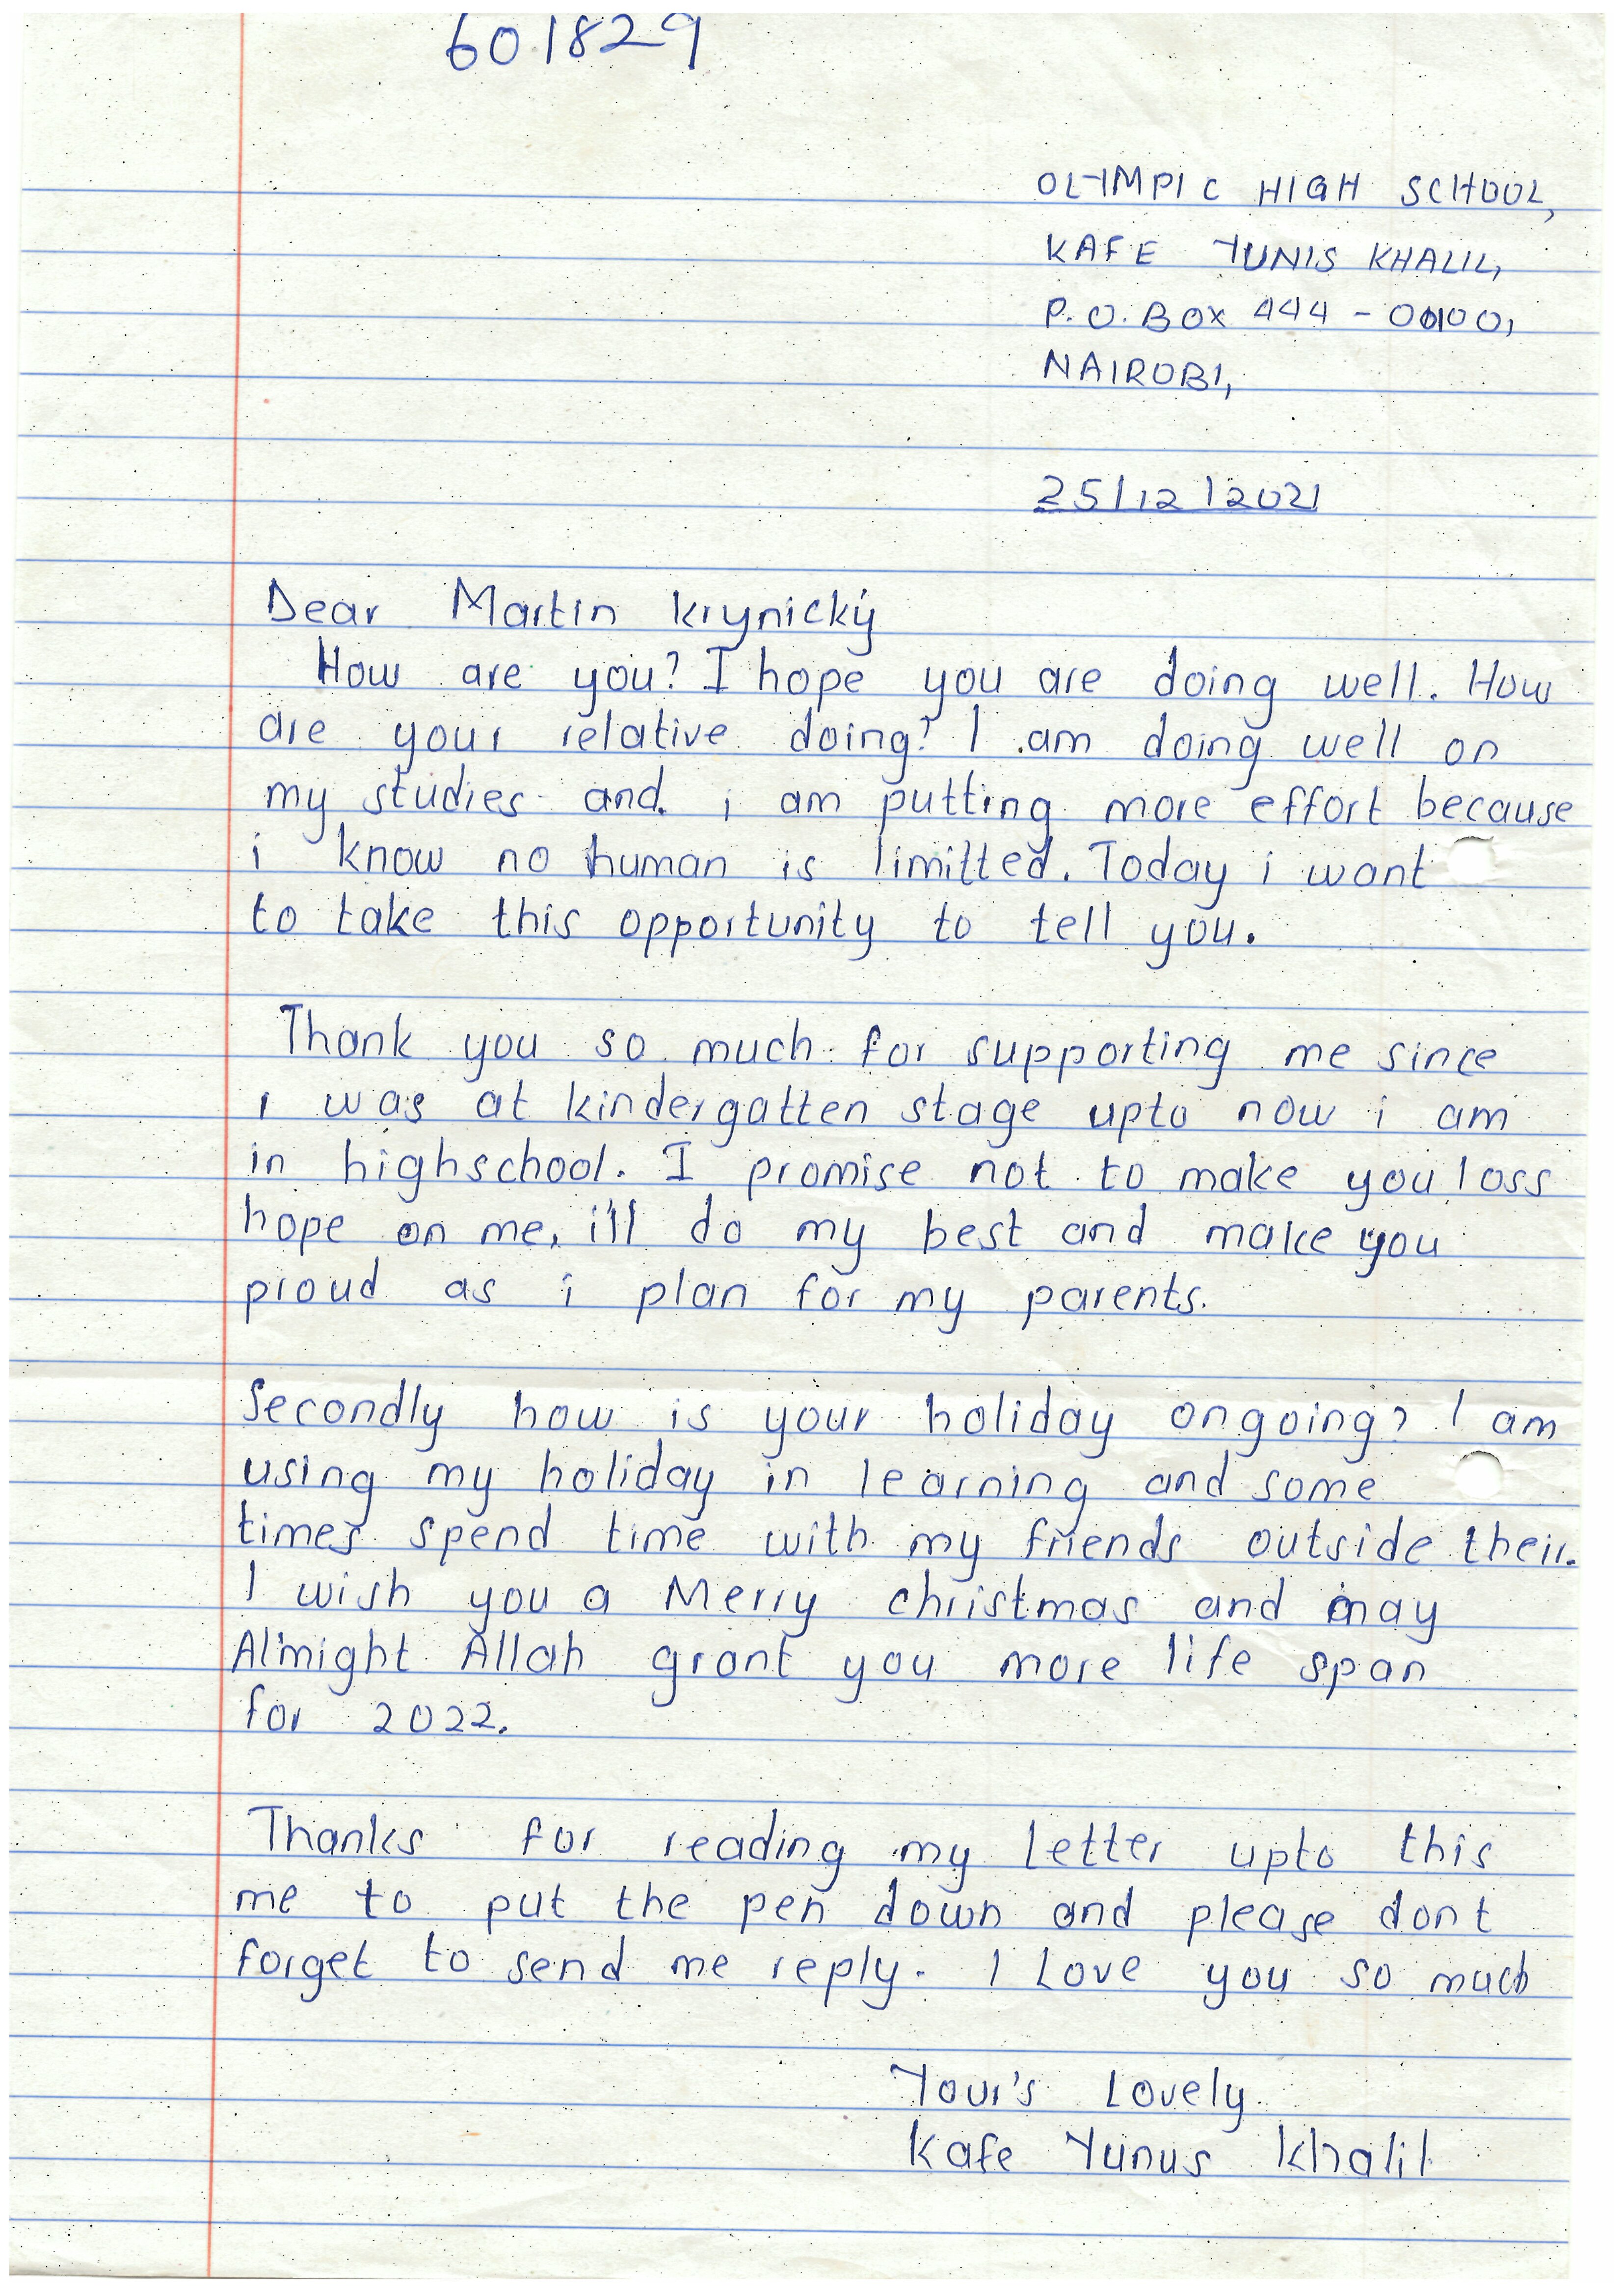 601829
OLYMPIC HIGH SCHOOL,
KAFE YUNIS KHALIL,
P.O. BOX 444 - 00100,
NAIROBI,
25/12/2021
Dear Martin Krynický
How are you? I hope you are doing well. How
are your relative doing? I am doing well on
my studies and i am putting more effort because
i know no human is limitted. Today i want
to take this opportunity to tell you.
Thank you so much for supporting me since
i was at kindergatten stage upto now i am
in highschool. I promise not to make you loss
hope on me, i'll do my best and make you
proud as i plan for my parents.
Secondly how is your holiday ongoing? I am
using my holiday in learning and some
times spend time with my friends outside their.
I wish you a Merry christmas and may
Almight Allah grant you more life span
for 2022.
Thanks for reading my letter upto this
me to put the pen down and please dont
forget to send me reply. I Love you so much
Your's Lovely
Kafe Yunus Khalil